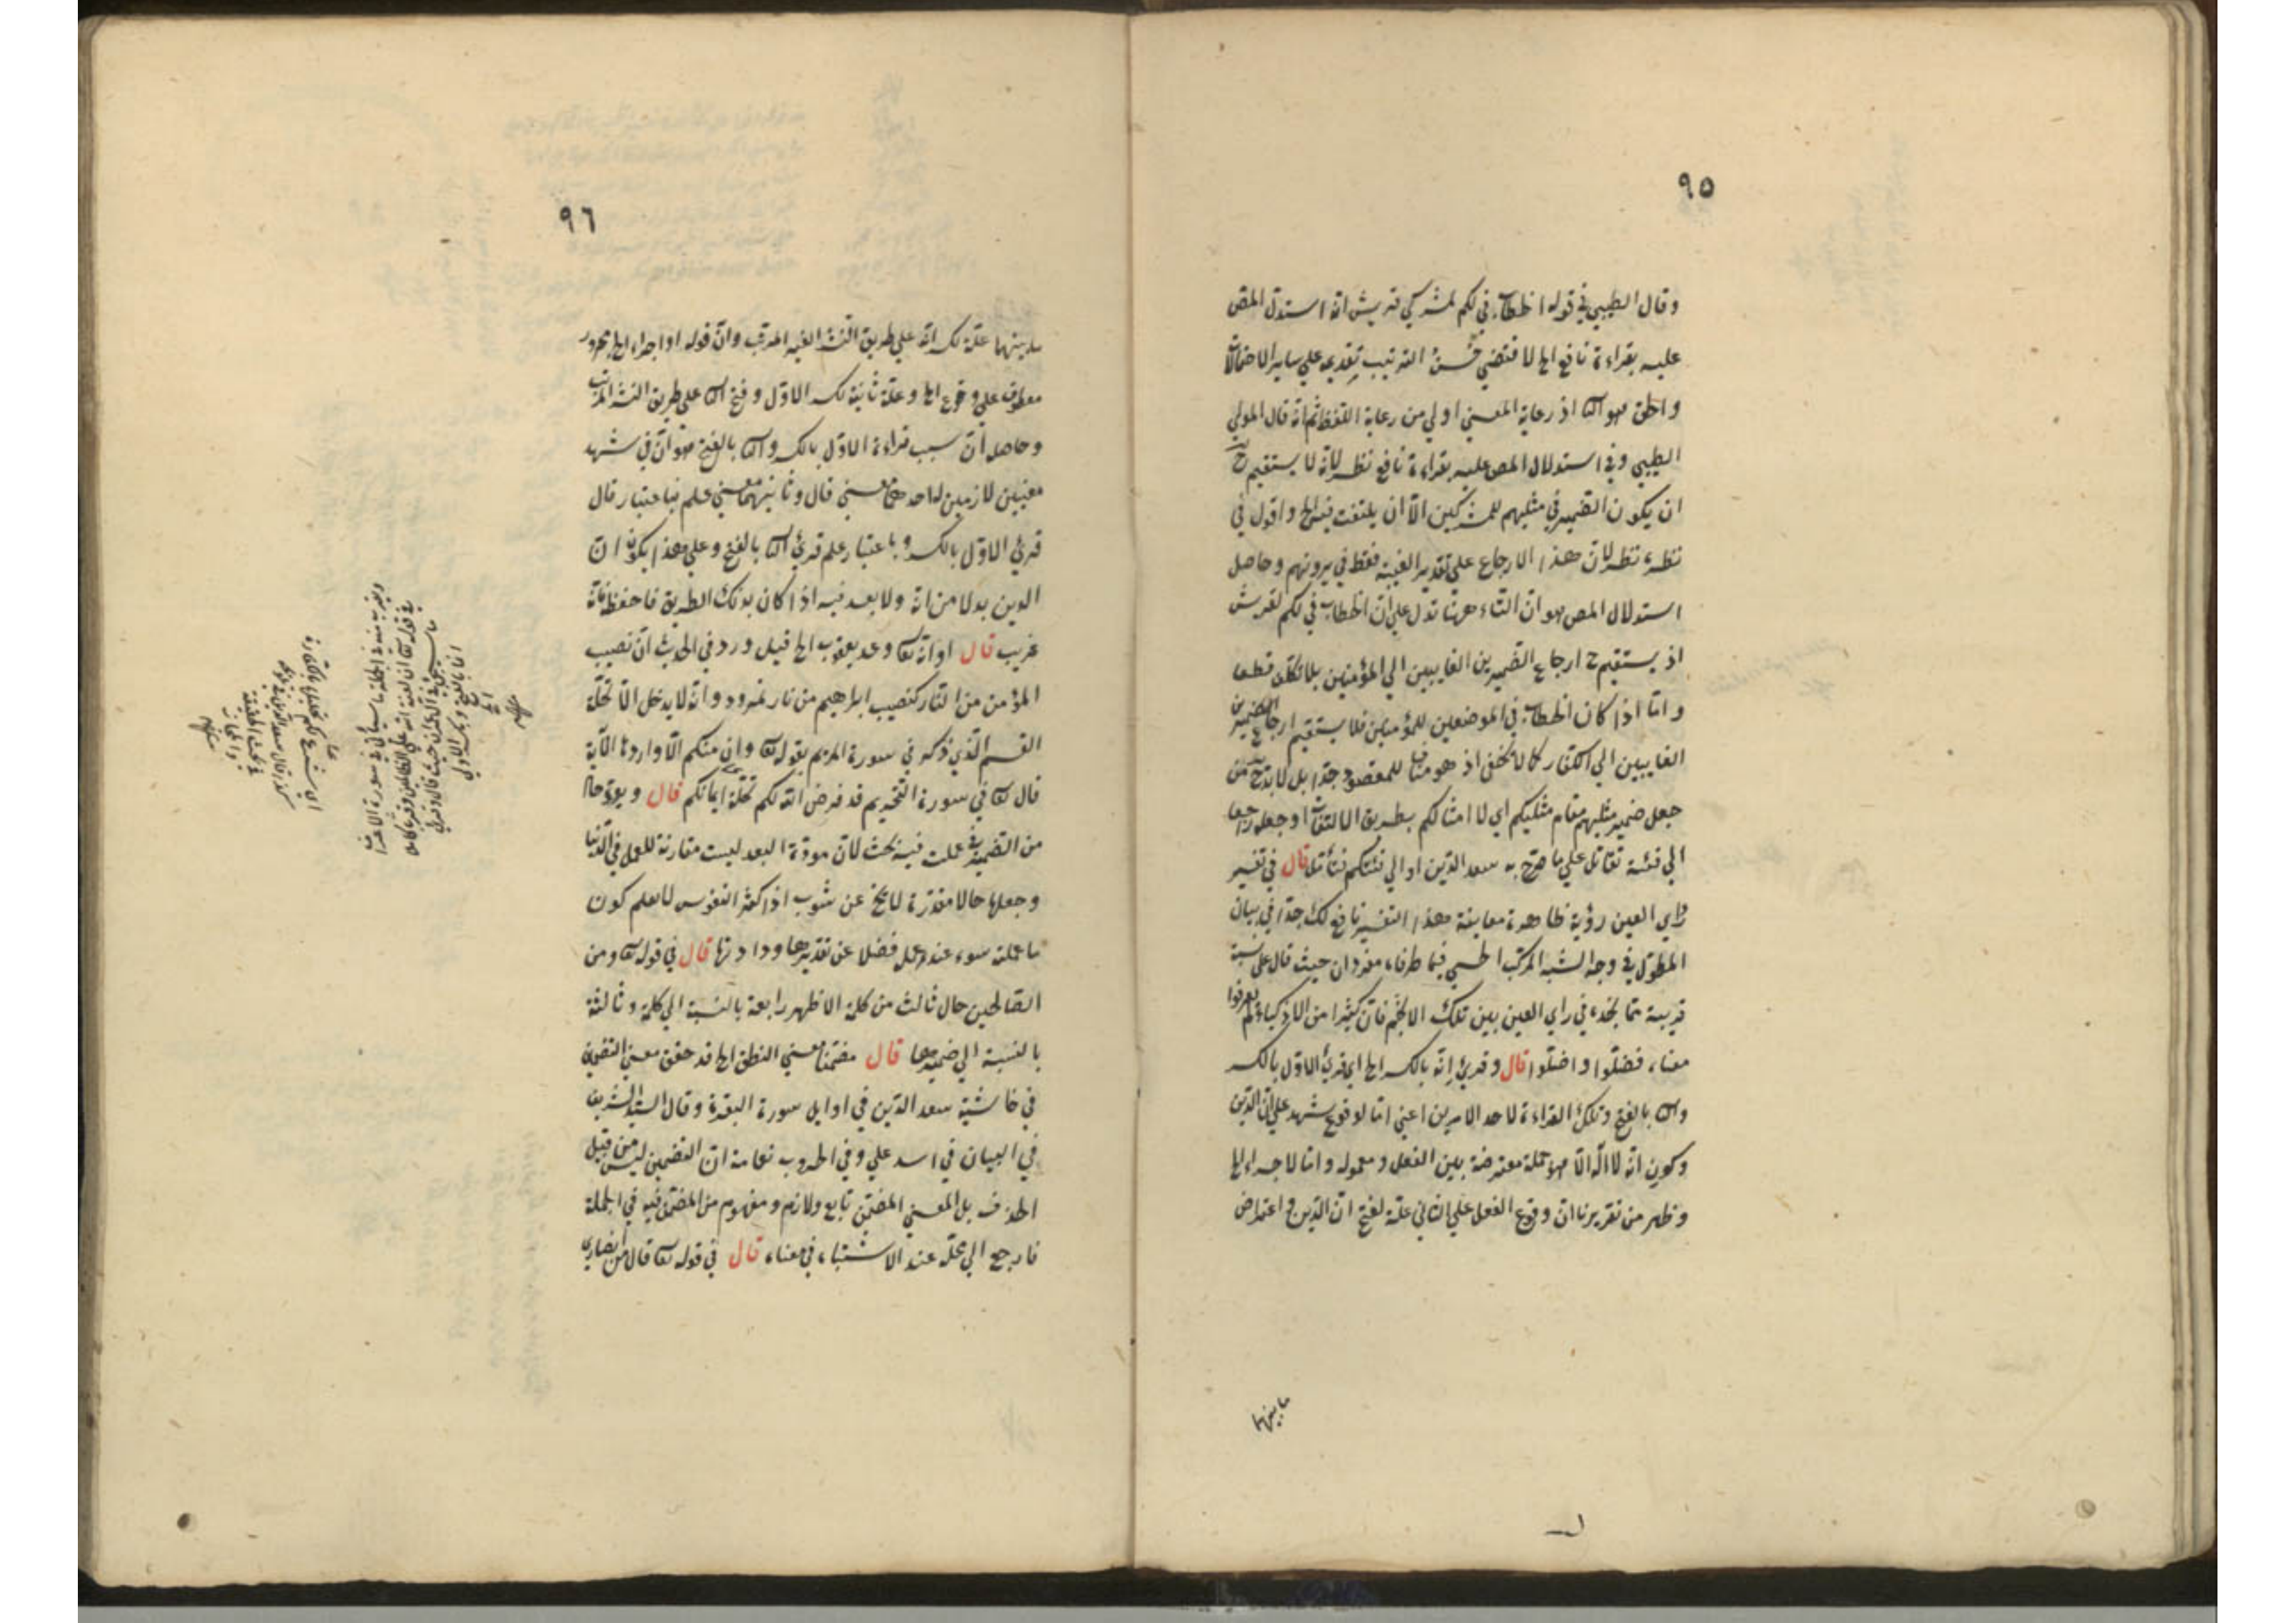 ٩٥
وقال الطيبي في قوله الخطاب في لكم لمشركي قريش انه استدل المص
عليه بقراءة نافع الخ لا قتضي حسن الترتيب تقديم علي ساير الاحتمالات
والحق هو الثا اذ رعاية المعنى اولي من رعاية اللفظ ثم انه قال المولي
الطيبي وفي استدلال المص عليه بقراءة نافع نظر لانه لا يستقيم ح
ان يكون الضمير في مثليهم للمشركين الا ان يلتفت فيه الخ واقول في
نظره نظر لان هذا الارجاع علي تقدير الغيبة فقط في يرونهم وحاصل
استدلال المص هو ان التاء هنا تدل علي ان الخطاب في لكم لقريش
اذ يستقيم ح ارجاع الضميرين الغايبين الي المؤمنين بلا تكلف قطعا
واما اذا كان الخطاب في الموضعين للمؤمنين فلا يستقيم ارجاع الضميرين
الغايبين الي الكفار كما لا يخفى اذ هو مناف للمقصود جدا بل لا بد ح من
جعل ضمير مثليهم مقام مثليكم اي لا امثالكم بطريق الالتفات او جعله راجعا
الي فئة تقاتل علي ما صرح به سعد الدين او الي فئتكم فتأمل قال في تفسير
راي العين رؤية ظاهرة معاينة هذا التفسير نافع لك جدا في بيان
المطول في وجه الشبه المركب الحسي فيما طرفاه مفردان حيث قال علي نسبة
قريبة مما يجده في راي العين بين تلك الانجم فان كثيرا من الاذكياء لم يعرفوا
معناه فضلوا واضلوا قال وقرئ انه بالكسر الخ اي قرئ الاول بالكسر
والثا بالفتح وتلك القراءة لاحد الامرين اعني اما لوقوع شهد علي ان الدين
وكون انه لا اله الا هو جملة معترضة بين الفعل ومعموله واما لاجراء الخ
وظهر من تقريرنا ان وقوع الفعل علي الثاني علة لفتح ان الدين واعتراض
ما بينهما
٩٦
ما بينهما علة لكسر انه علي طريق النشر الغير المرتب وان قوله او اجراء الخ مجرور
معطوف علي وقوع الخ وعلة ثانية لكسر الاول وفتح الثا علي طريق النشر المرتب
وحاصله ان سبب قراءة الاول بالكسر والثا بالفتح هو ان في شهد
معنيين لازمين احدهما معنى قال وثانيهما معنى علم فباعتبار قال
قرئ الاول بالكسر وباعتبار علم قرئ الثا بالفتح وعلي هذا يكون ان
الدين بدلا من انه ولا بعد فيه اذا كان بذلك الطريق فاحفظ فانه
غريب قال او انه تعا وعد يعقوب الخ قيل ورد في الحديث ان نصيب
المؤمن من النار كنصيب ابراهيم من نار نمرود وانه لا يدخل الا تحلة
القسم الذي ذكره في سورة المريم بقوله تعا وان منكم الا واردها الآية
قال تعا في سورة التحريم قد فرض الله لكم تحلة ايمانكم قال ويود حال
من الضمير في عملت فيه بحث لان مودة البعد ليست مقارنة للعمل في الدنيا
وجعلها حالا مقدرة لا يخ عن شوب اذ اكثر النفوس لا يعلم كون
ما عملته سوء عند العمل فضلا عن تقديرها ودادتها قال في قوله تعا ومن
الصالحين حال ثالث من كلمة الاظهر رابعة بالنسبة الي كلمة وثالثة
بالنسبة الي ضميرها قال مضمنا معنى النطق الخ قد حقق معنى التضمين
في حاشية سعد الدين في اوايل سورة البقرة وقال السيد الشريف
في البيان في اسد علي وفي الحروب نعامة ان التضمين ليس من قبيل
الحذف بل المعنى المضمن تابع ولازم ومفهوم من المضمن فيه في الجملة
فارجع الي محله عند الاشتباه في معناه قال في قوله تعا قال من انصاري